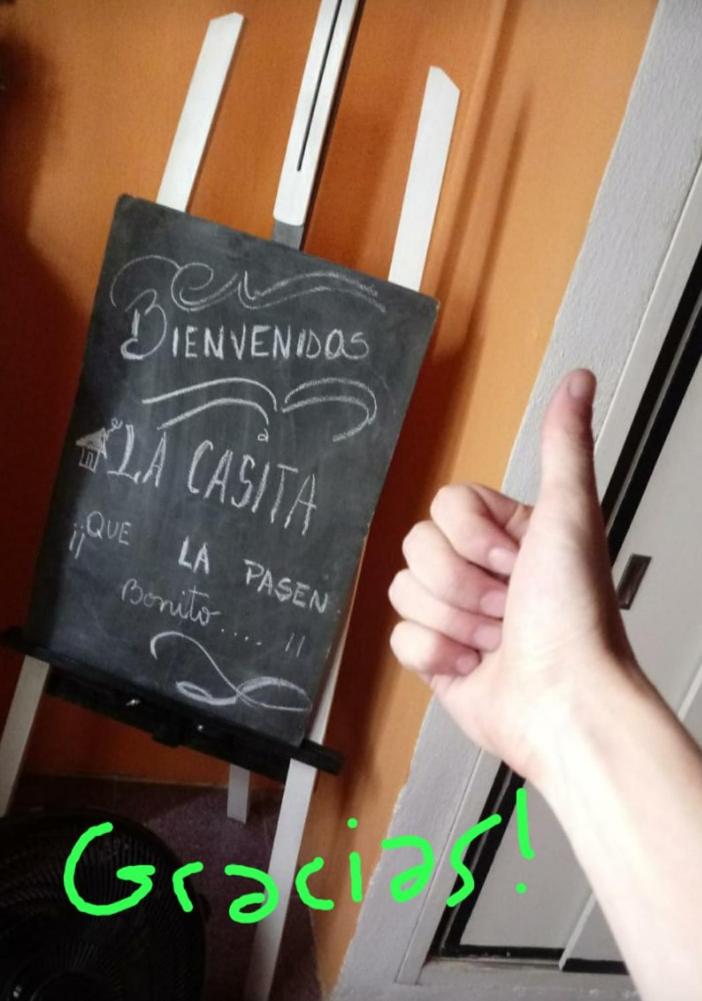 BIENVENIDOS
a
LA CASITA
¡¡QUE LA PASEN
Bonito.... !!
Gracias!